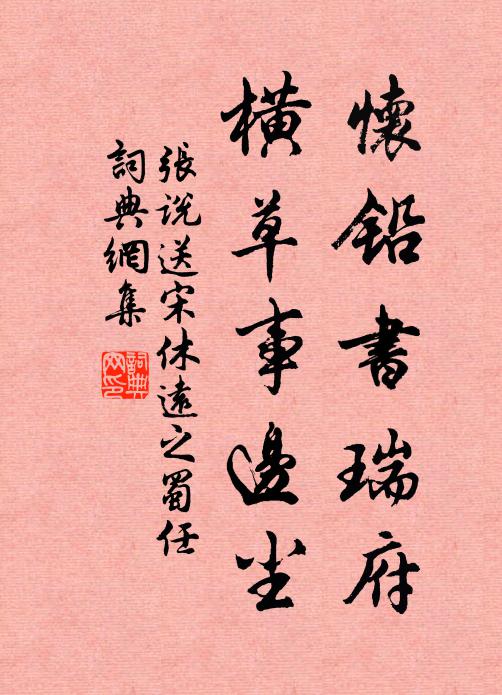 懷鉛書瑞府
橫草事邊坐
張說送宋休遠之蜀任
詞典網集
詞典網印